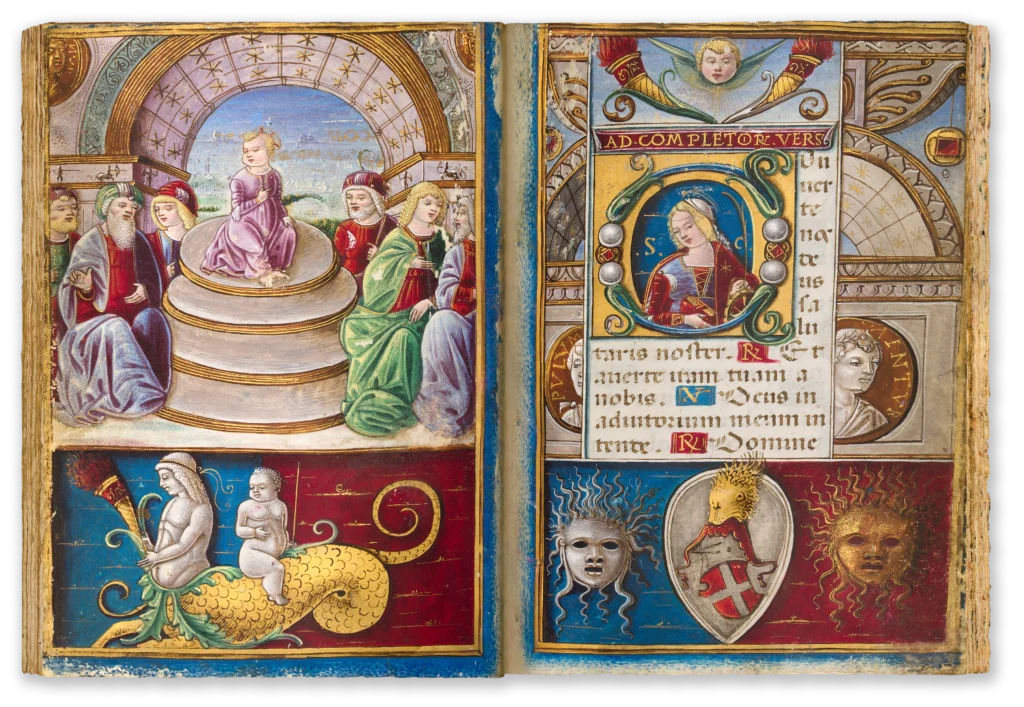 AD·COMPLETOR͞·VERS
Con
uer
te
nos
de
us
sa
lu
S. C.
taris noster. R̷ Et
auerte iram tuam a
nobis. V̷ Deus in
adiutorium meum in
tente. R̷ Domine